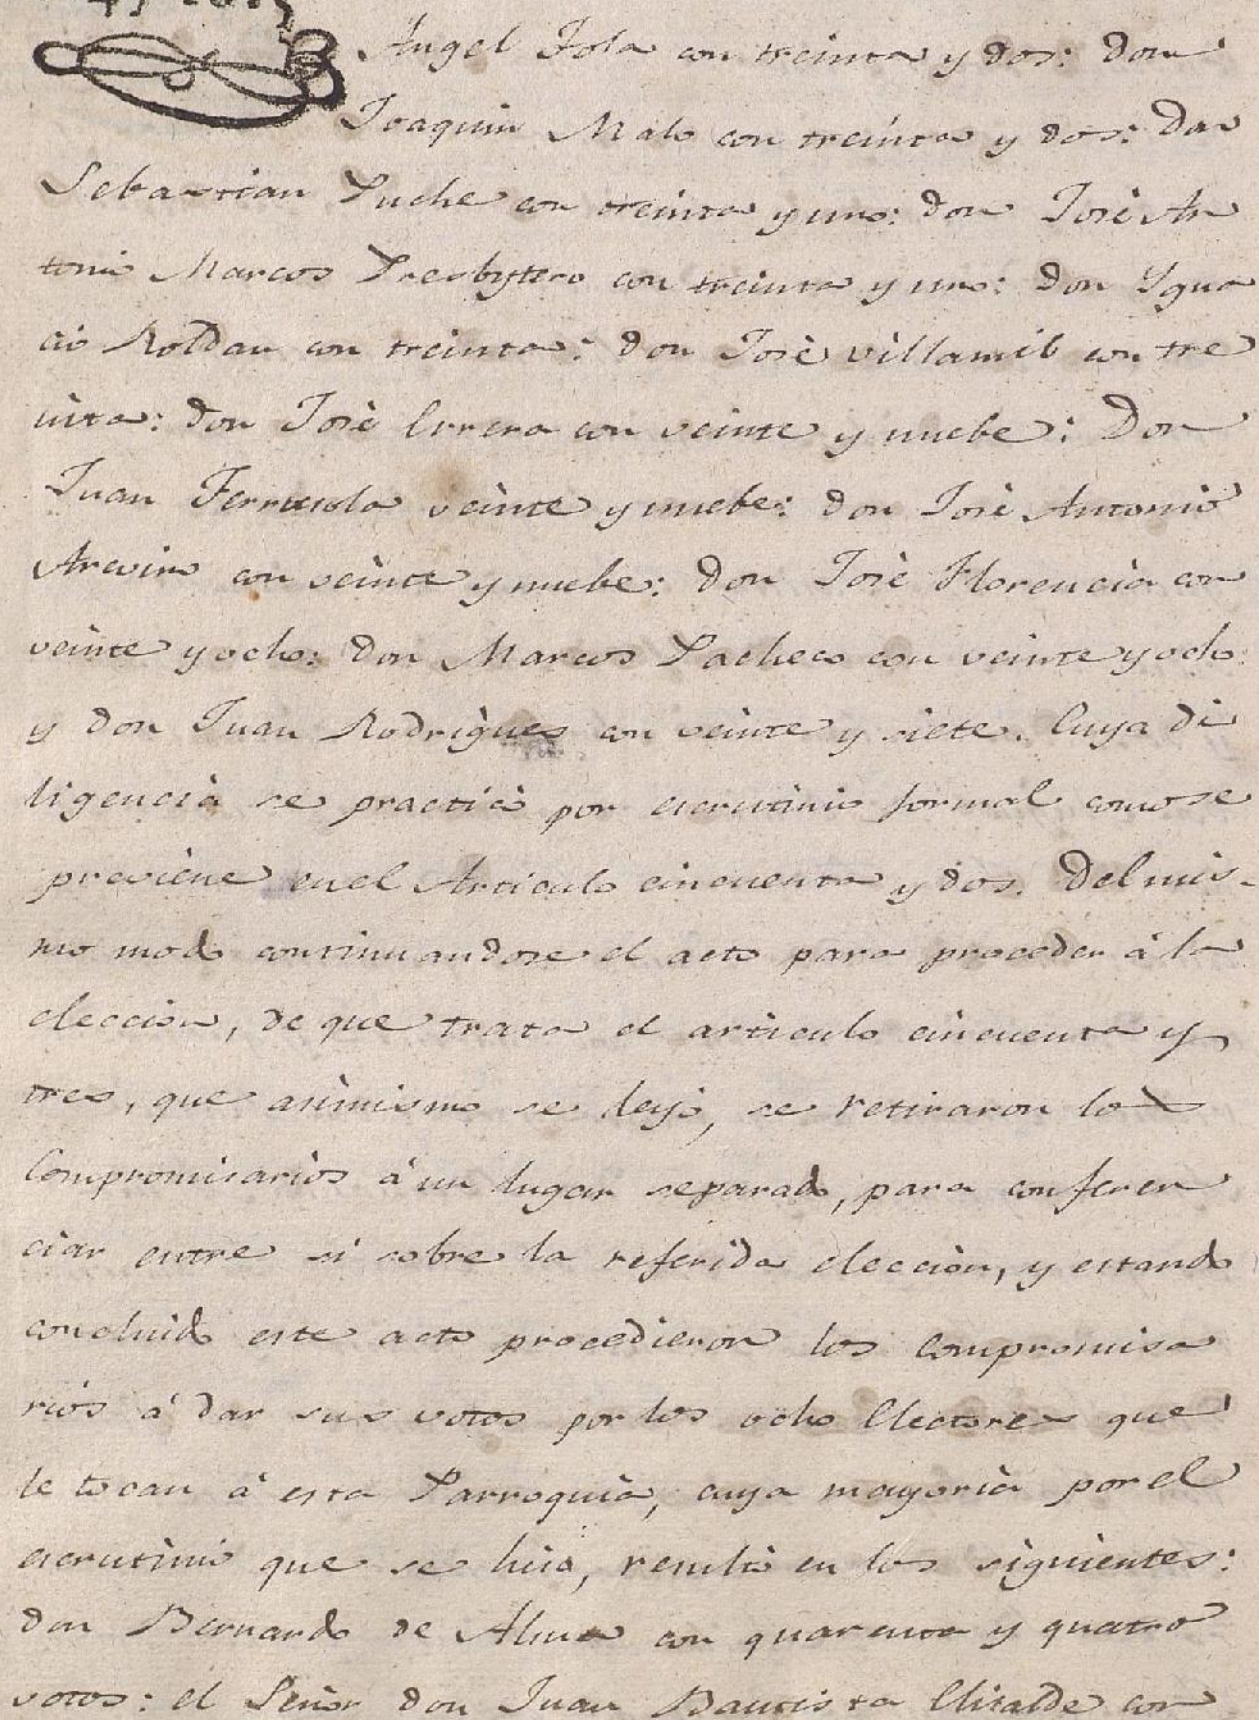 Angel Tola con treinta y dos: don
Joaquin Malo con treinta y dos: Don
Sebastian Puche con treinta y uno: don José An
tonio Marcos Presbytero con treinta y uno: don Ygna
cio Roldan con treinta: don José villamil con tre
inta: don José Errera con veinte y nuebe: Don
Juan Ferrusola veinte y nuebe: don José Antonio
con veinte y nuebe: Don José Florencia con
veinte y ocho: Don Marcos Pacheco con veinte y ocho:
y don Juan Rodrigues con veinte y siete. Cuya di
ligencia se practicó por escrutinio formal como se
previene en el Articulo cincuenta y dos. Del mis-
mo modo continuandose el acto para proceder á la
eleccion, de que trata el articulo cincuenta y
tres, que asimismo se leyó, se retiraron los
Compromisarios á un lugar separado, para conferen
ciar entre si sobre la referida eleccion, y estando
concluido este acto procedieron los Compromisa
rios á dar sus votos por los ocho Electores que
le tocan á esta Parroquia, cuya mayoria por el
escrutinio que se hizo, resultó en los siguientes:
don Bernardo de Alzua con quarenta y quatro
votos: el Señor don Juan Bautista Elisalde con